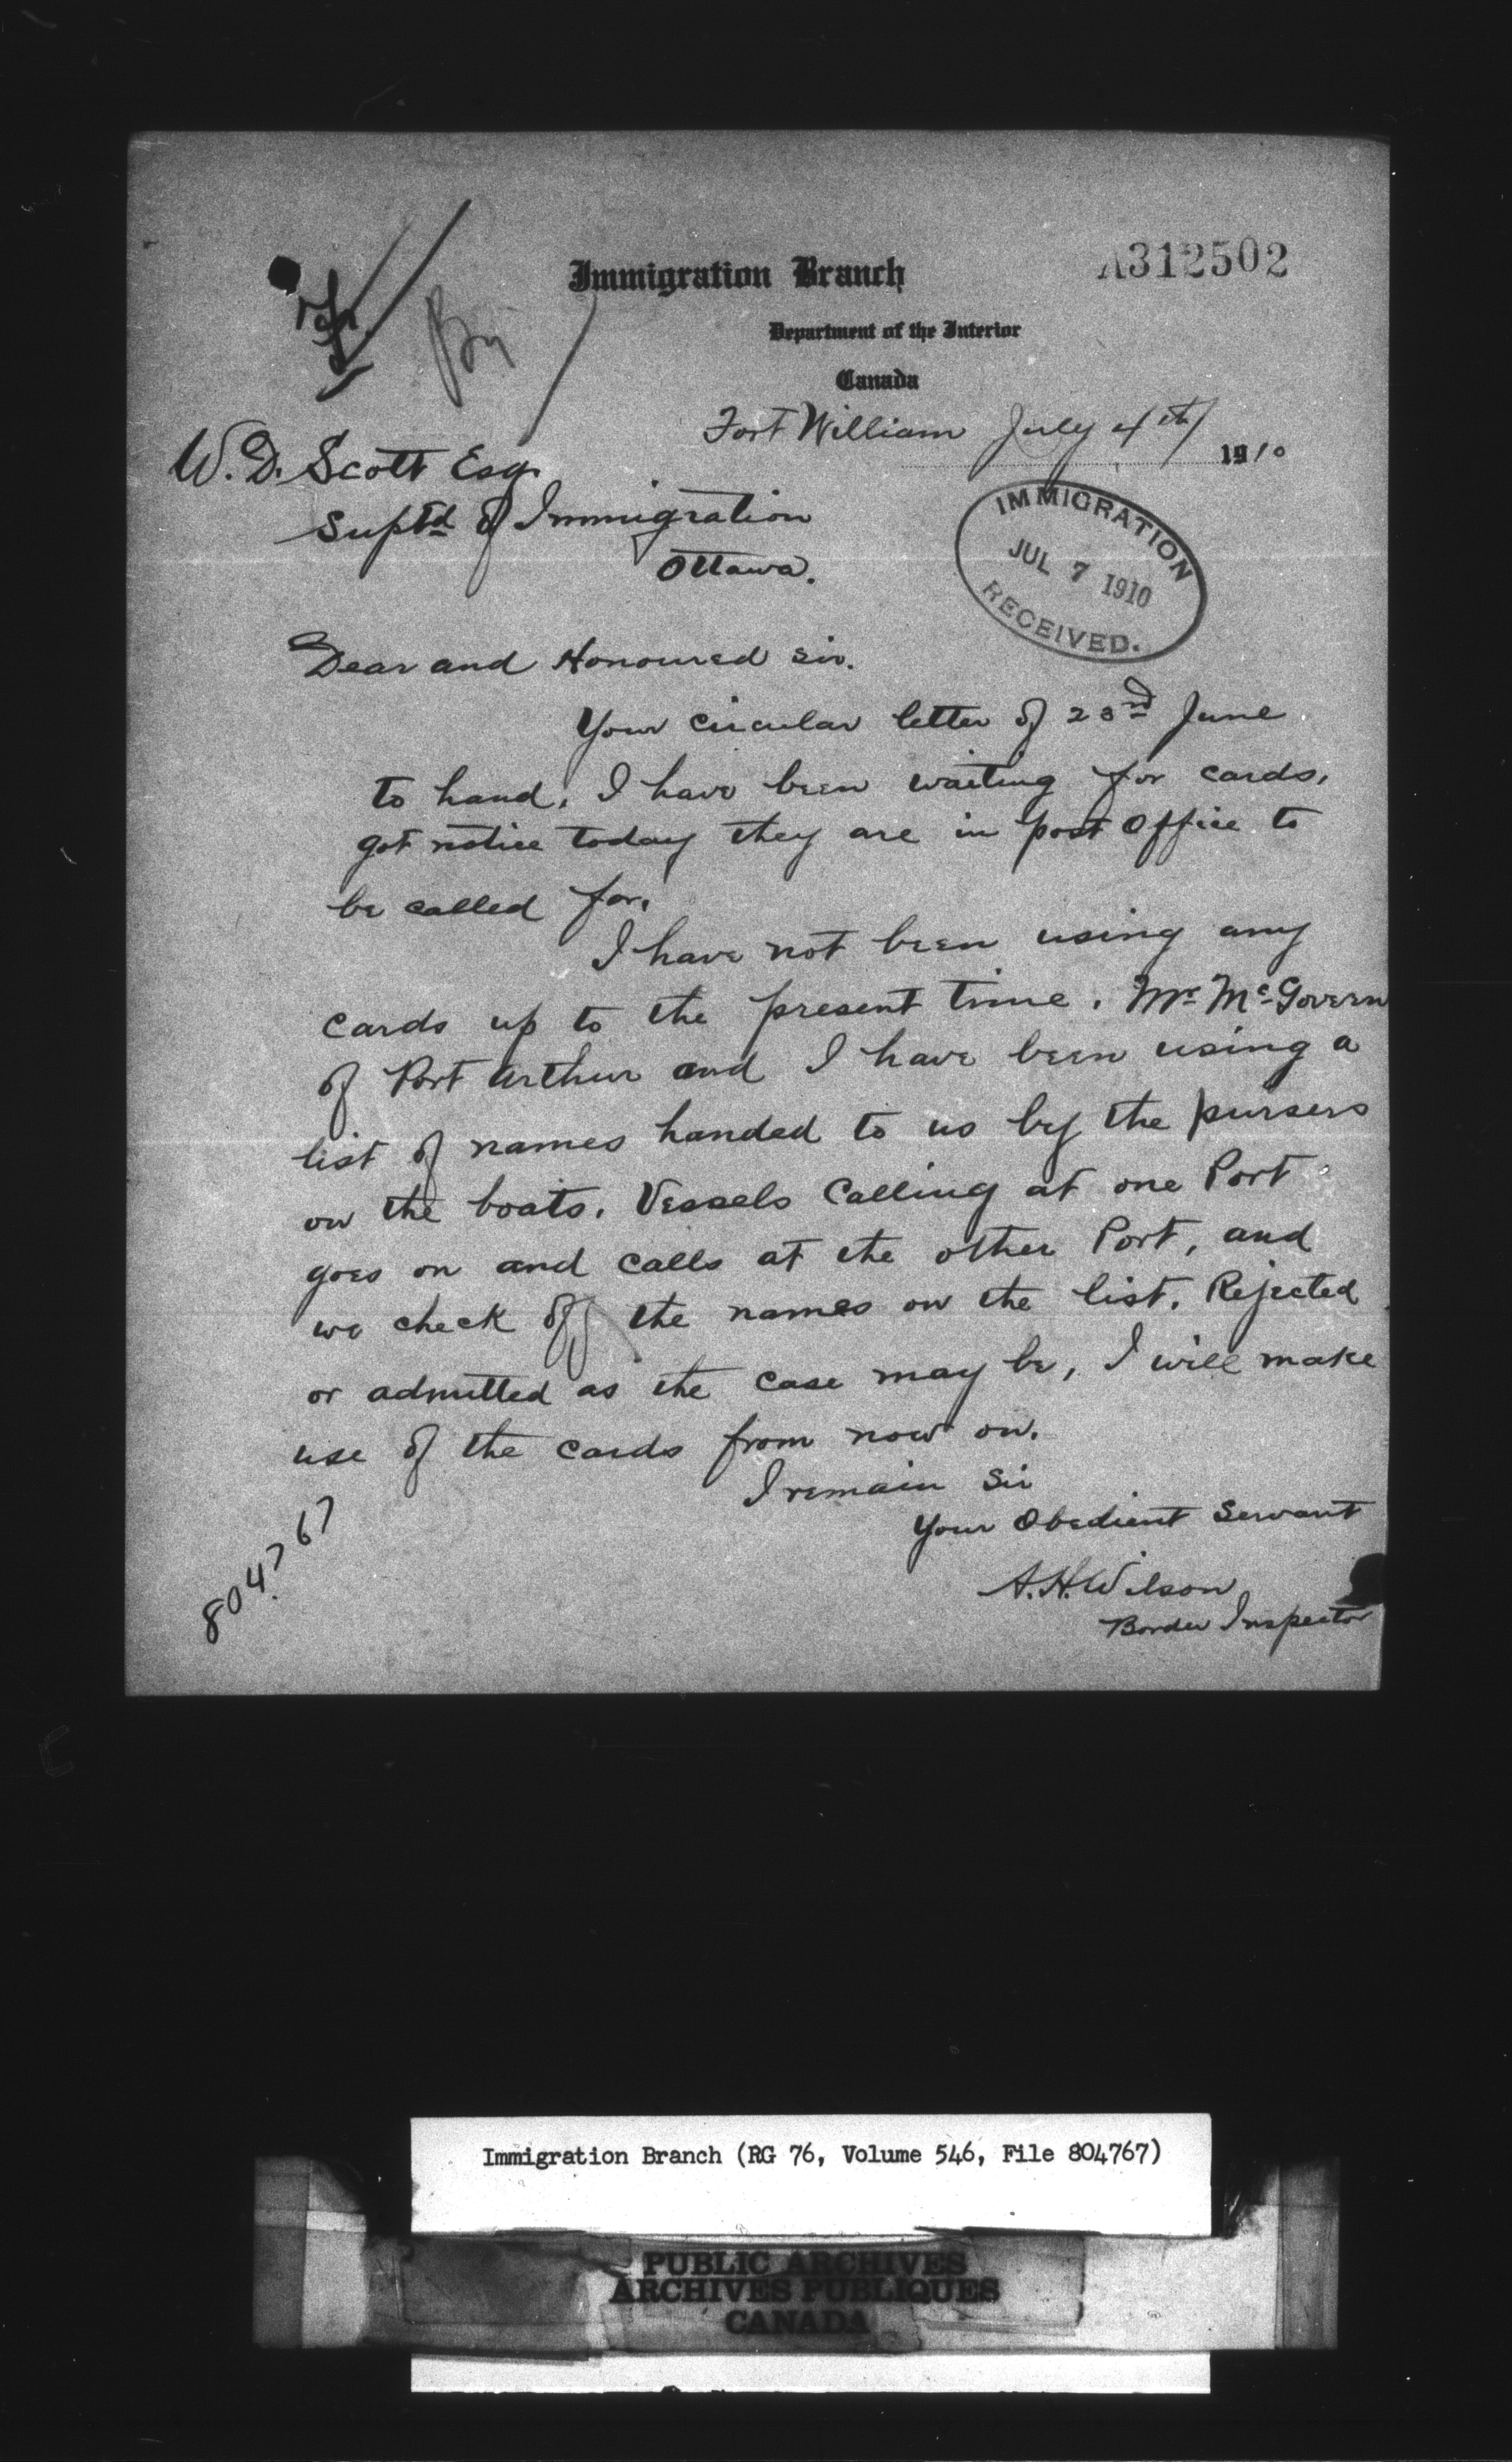 A312502
Immigration Branch
Department of the Interior
Canada
Fort William July 4th 1910
W. D. Scott Esq.
Suptd of Immigration
Ottawa.
IMMIGRATION
JUL 7 1910
RECEIVED.
Dear and Honoured Sir.
Your circular letter of 23rd June
to hand, I have been waiting for cards,
got notice today they are in post Office to
be called for.
I have not been using any
cards up to the present time. Mr. McGovern
of Port Arthur and I have been using a
list of names handed to us by the pursers
on the boats. Vessels Calling at one Port
goes on and calls at the other Port, and
we check off the names on the list. Rejected
or admitted as the case may be, I will make
use of the cards from now on.
I remain Sir
Your Obedient Servant
A. H. Wilson
Border Inspector
804767
Immigration Branch (RG 76, Volume 546, File 804767)
PUBLIC ARCHIVES
ARCHIVES PUBLIQUES
CANADA